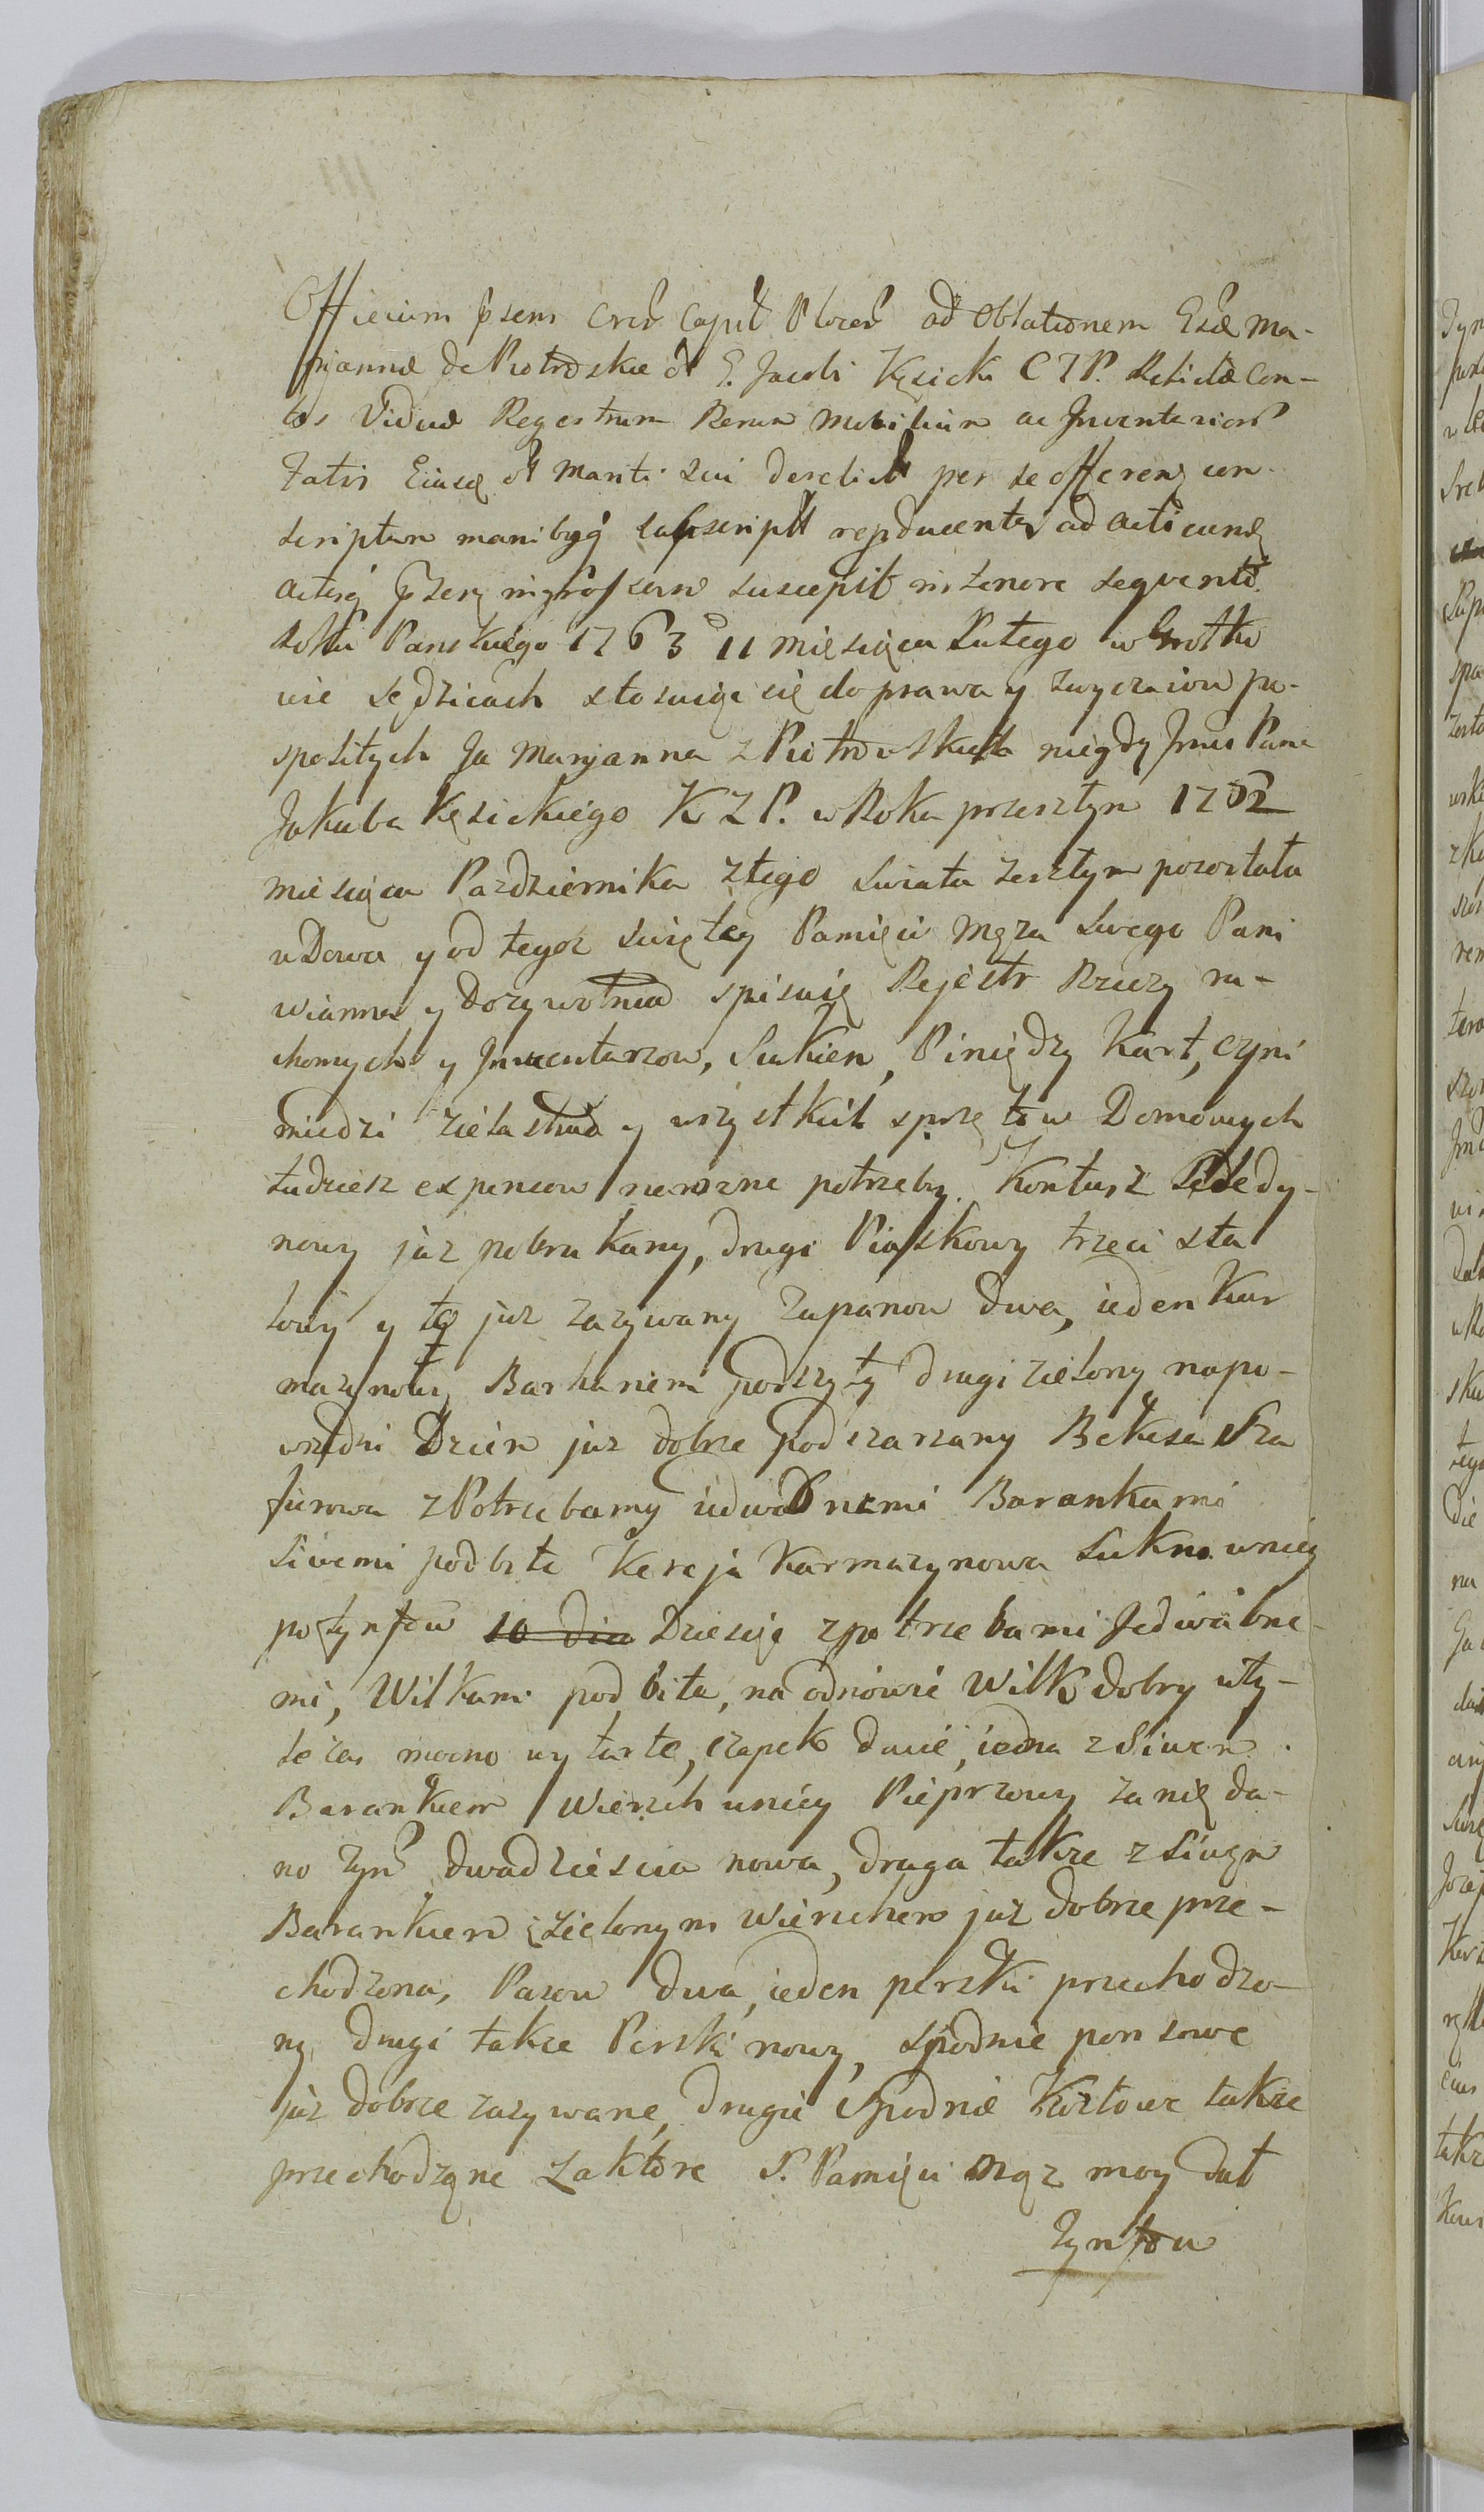 Officium psens Cncř Capit Plocen ad Oblationem Gsæ Ma-
rjannæ de Piotroskie ol G. Jacobi Kęsicki C Z P. Relictæ Con-
tos Viduæ Regestrum Rerum Mobilium ac Inventarior
fatis Eiusq ol Mariti Sui derelict per se offerenq con-
scriptum manibq subscript reproducentis ad acticandq
actisq psenq ingrossand suscepit in tenore sequenti.
Roku Panskiego 1763 11 Miesiąca Lutego w Grotko
wie Sędzicach stosuiąc się do prawa y zwyczaiow po-
spolitych Ja Maryanna z Piotrowskich niegdy Jmci Pana
Jakuba Kęsickiego K Z P. w Roku przeszłym 1762
miesiąca Pazdziernika z tego Swiata zeszłym pozostała
wDowa y od tegoz Swiętey Pamięci Męza Swego Pani
wianna y Dozywotnia spisuię Rejestr Rzeczy ru-
chomych y Inwentarzow, Sukien, Piniędzy Kart, cyni
miedzi zielastwa y wszystkich sprzętow Domowych
tudziesz expensow na rozne potrzeby. Kontusz Peledy-
nowy juz pobrukany, drugi Piaskowy trzeci sta
lowy y to juz zazywany Zupanow dwa, ieden Kar
mazynowy Barhanem podszyty drugi zielony napo-
wszedni Dzien juz dobrze podszarzany Bekiesa Sza
firowa z Potrzebamy iedwabnemi Barankami
Siwemi podbite Kereja Karmazynowa Sukno wniey
po tynfow Dziesięć z potrzebami Jedwabne-
mi, Wilkami pod bita, na odnowie Wilk dobry w ty-
le zas mocno wytarte, czapek dwie, iedna z Siwem
Barankiem Wierzch uniey Pieprzowy za nię da-
no Tyn dwadziescia nowa, druga takze z Siwym
Barankiem z zielonym Wierzchem juz dobrze prze-
chodzona, Pasow dwa, ieden perski przechodzo-
ny drugi takze Perski nowy, Spodnie ponsowe
juz dobrze zazywane, drugie Spodnie Kozłowe takze
przechodzone zaktore S. Pamięci Mąz moy dał
Tynfow